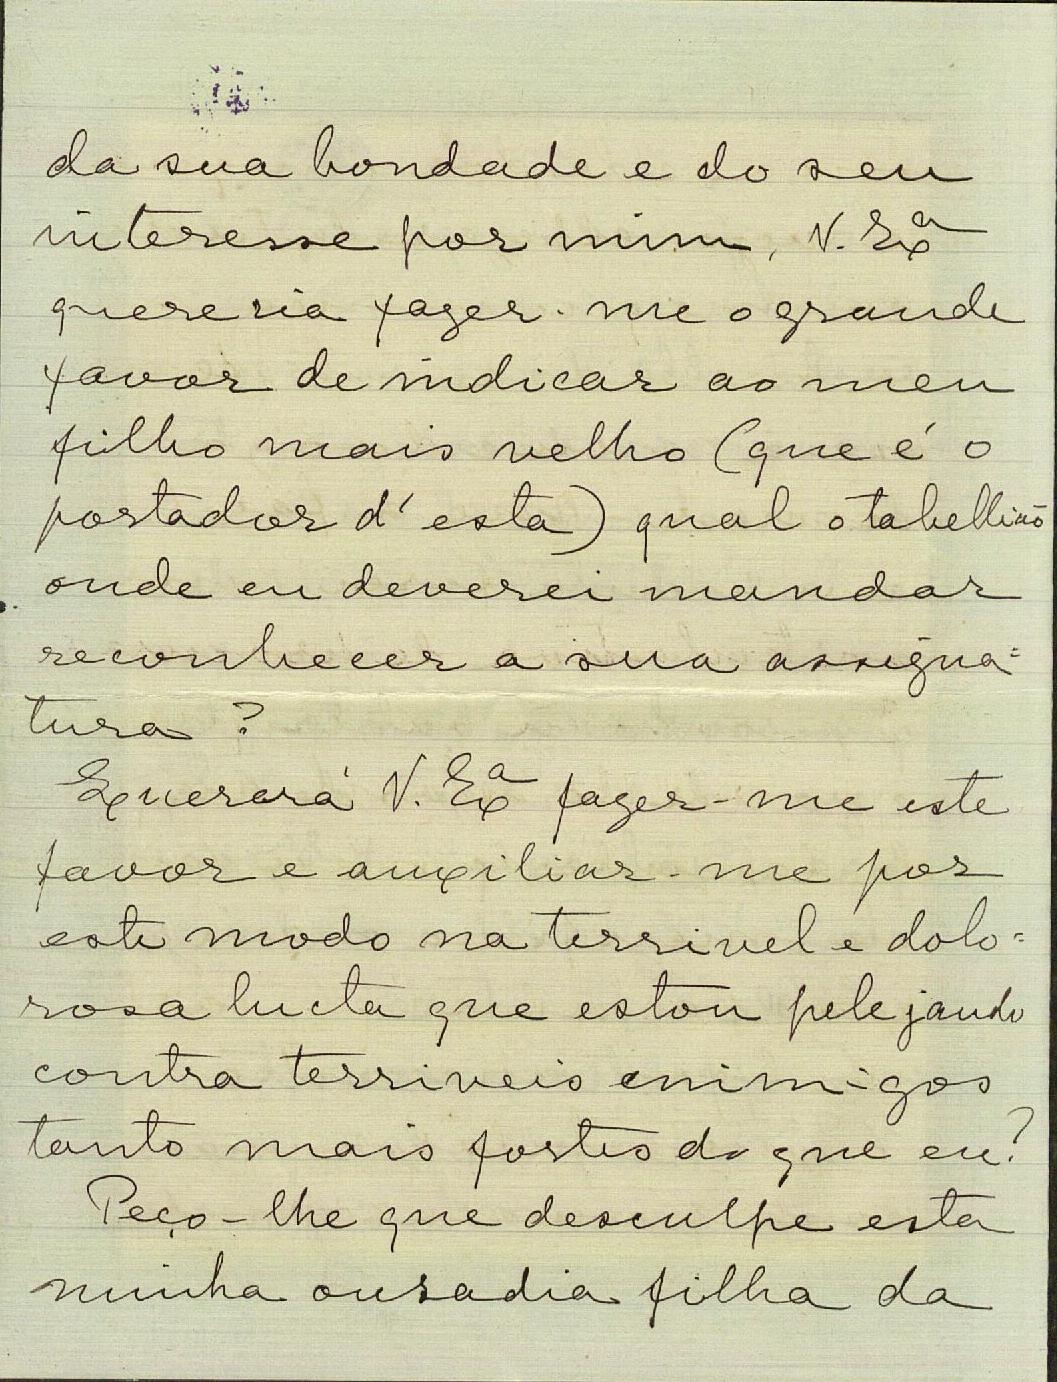 da sua bondade e do seu
interesse por mim, V. Exª
quereria fazer-me o grande
favor de indicar ao meu
filho mais velho (que é o
portador d'esta) qual o tabellião
onde eu deverei mandar
reconhecer a sua assigna=
tura?
Quererá V. Exª fazer-me este
favor e auxiliar-me por
este modo na terrivel e dolo=
rosa lucta que estou pelejando
contra terriveis enimigos
tanto mais fortes do que eu?
Peço-lhe que desculpe esta
minha ousadia filha da